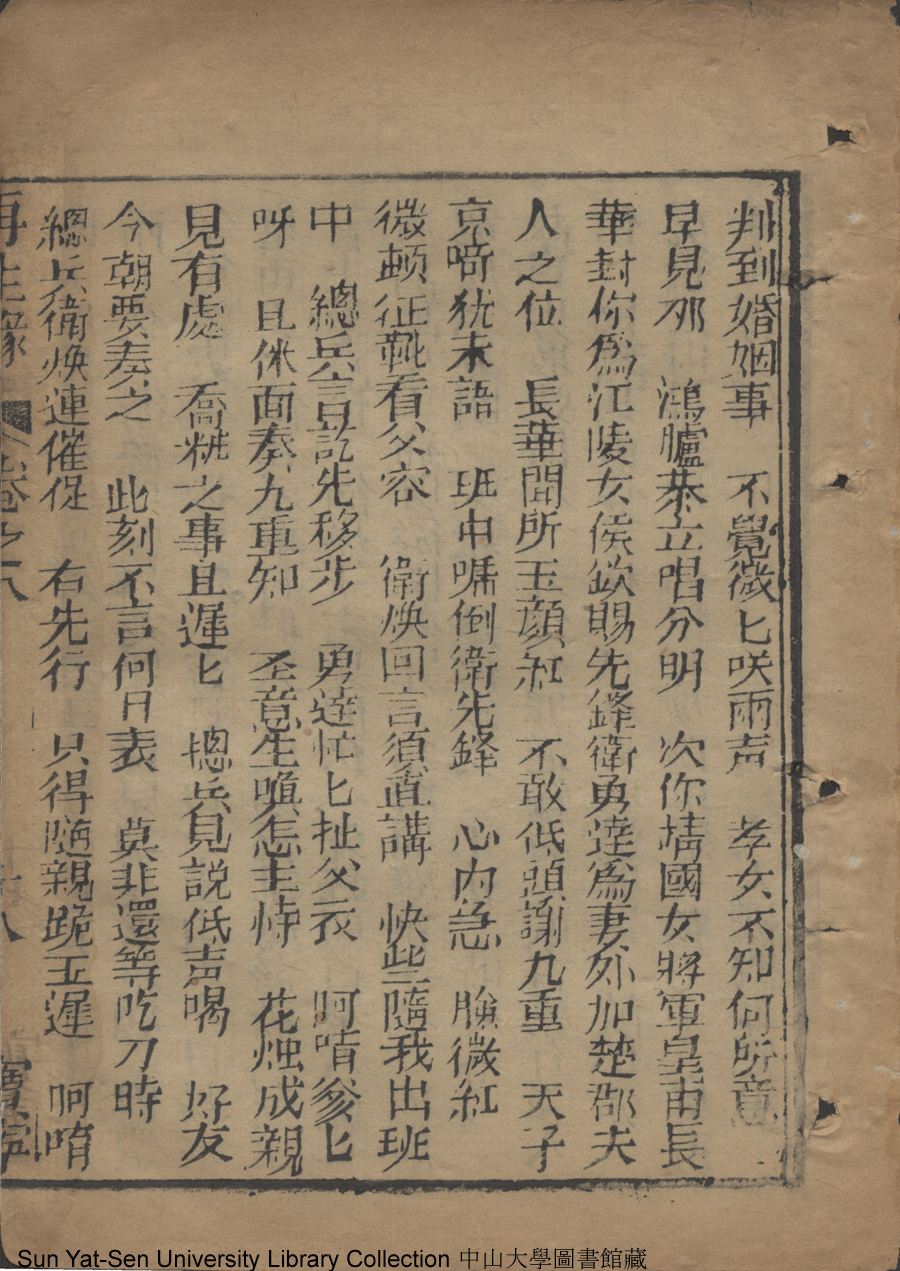 判到婚姻事　不覺微匕咲兩声　孝女不知何所意
早見邜　鴻臚恭立唱分明　次你靖國女將軍皇甫長
華封你爲江陵女侯欽賜先鋒衛勇逹爲妻外加楚郡夫
人之位　長華聞所玉顔紅　不敢低頭謝九重　天子
京啼犹未語　班中嚇倒衛先鋒　心内急　臉微紅
微頓征靴看父容　衛煥回言須直講　快些隨我出班
中　總兵言訖先移步　勇逹忙匕扯父衣　呵唷爹匕
呀　且休面奏九重知　圣意生嗔怎主恃　花烛成親
見有處　喬粧之事且遲匕　總兵見説低声喝　好友
今朝要奏之　此刻不言何日表　莫非還等吃刀時
總兵衛煥連催促　右先行　只得隨親跪玉遲　呵唷
再生緣　卷之六　八　寶寧
Sun Yat-Sen University Library Collection 中山大學圖書館藏